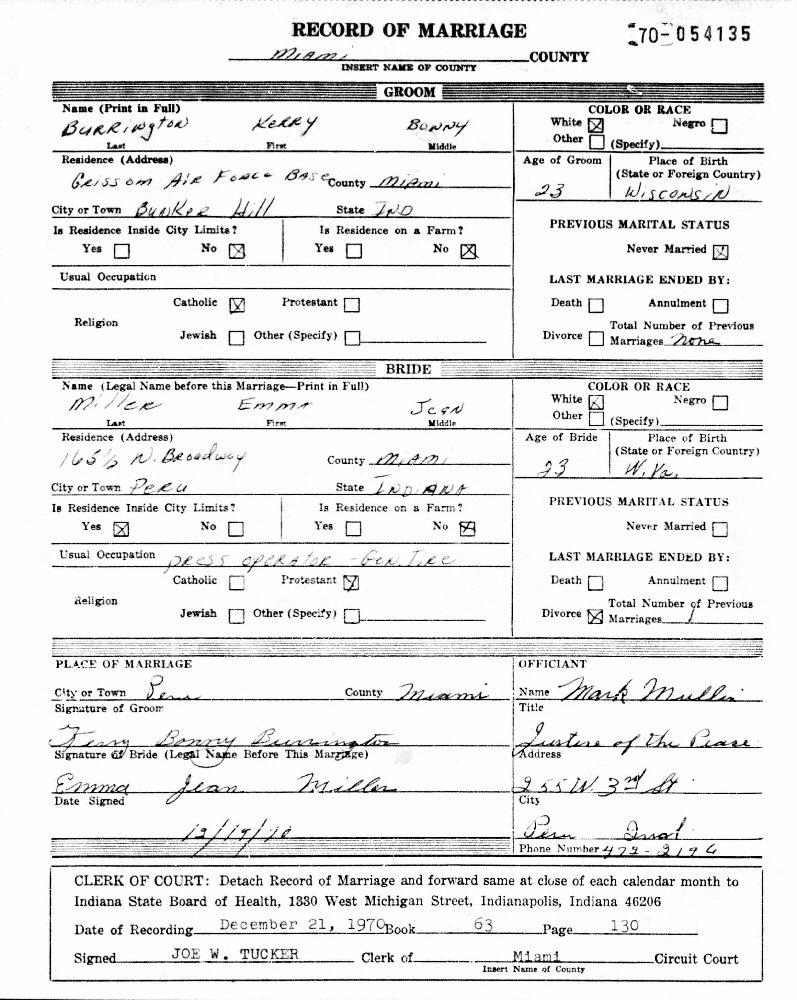 RECORD OF MARRIAGE
70-054135
Miami COUNTY
INSERT NAME OF COUNTY
GROOM
Name (Print in Full)
BURRINGTON KERRY BONNY
Last First Middle
COLOR OR RACE
White ☒ Negro ☐
Other ☐ (Specify)
Residence (Address)
GRISSOM AIR FORCE BASE County MIAMI
Age of Groom 23
Place of Birth
(State or Foreign Country)
WISCONSIN
City or Town BUNKER Hill State IND
Is Residence Inside City Limits? Is Residence on a Farm?
Yes ☐ No ☒ Yes ☐ No ☒
PREVIOUS MARITAL STATUS
Never Married ☒
Usual Occupation
LAST MARRIAGE ENDED BY:
Religion
Catholic ☒ Protestant ☐
Jewish ☐ Other (Specify) ☐
Death ☐ Annulment ☐
Divorce ☐ Total Number of Previous
Marriages None
BRIDE
Name (Legal Name before this Marriage—Print in Full)
Miller EMMA JEAN
Last First Middle
COLOR OR RACE
White ☒ Negro ☐
Other ☐ (Specify)
Residence (Address)
165½ N. Broadway County MIAMI
Age of Bride 23
Place of Birth
(State or Foreign Country)
W. Va.
City or Town PERU State INDIANA
Is Residence Inside City Limits? Is Residence on a Farm?
Yes ☒ No ☐ Yes ☐ No ☒
PREVIOUS MARITAL STATUS
Never Married ☐
Usual Occupation PRESS OPERATOR - GEN. TIRE
LAST MARRIAGE ENDED BY:
Religion
Catholic ☐ Protestant ☒
Jewish ☐ Other (Specify) ☐
Death ☐ Annulment ☐
Divorce ☒ Total Number of Previous
Marriages 1
PLACE OF MARRIAGE
City or Town Peru County Miami
Signature of Groom
Kerry Bonny Burrington
Signature of Bride (Legal Name Before This Marriage)
Emma Jean Miller
Date Signed
12/19/70
OFFICIANT
Name Mark Mullin
Title
Justice of the Peace
Address
255 W. 3rd St
City
Peru Ind.
Phone Number 472-2196
CLERK OF COURT: Detach Record of Marriage and forward same at close of each calendar month to
Indiana State Board of Health, 1330 West Michigan Street, Indianapolis, Indiana 46206
Date of Recording December 21, 1970 Book 63 Page 130
Signed JOE W. TUCKER Clerk of Miami Circuit Court
Insert Name of County